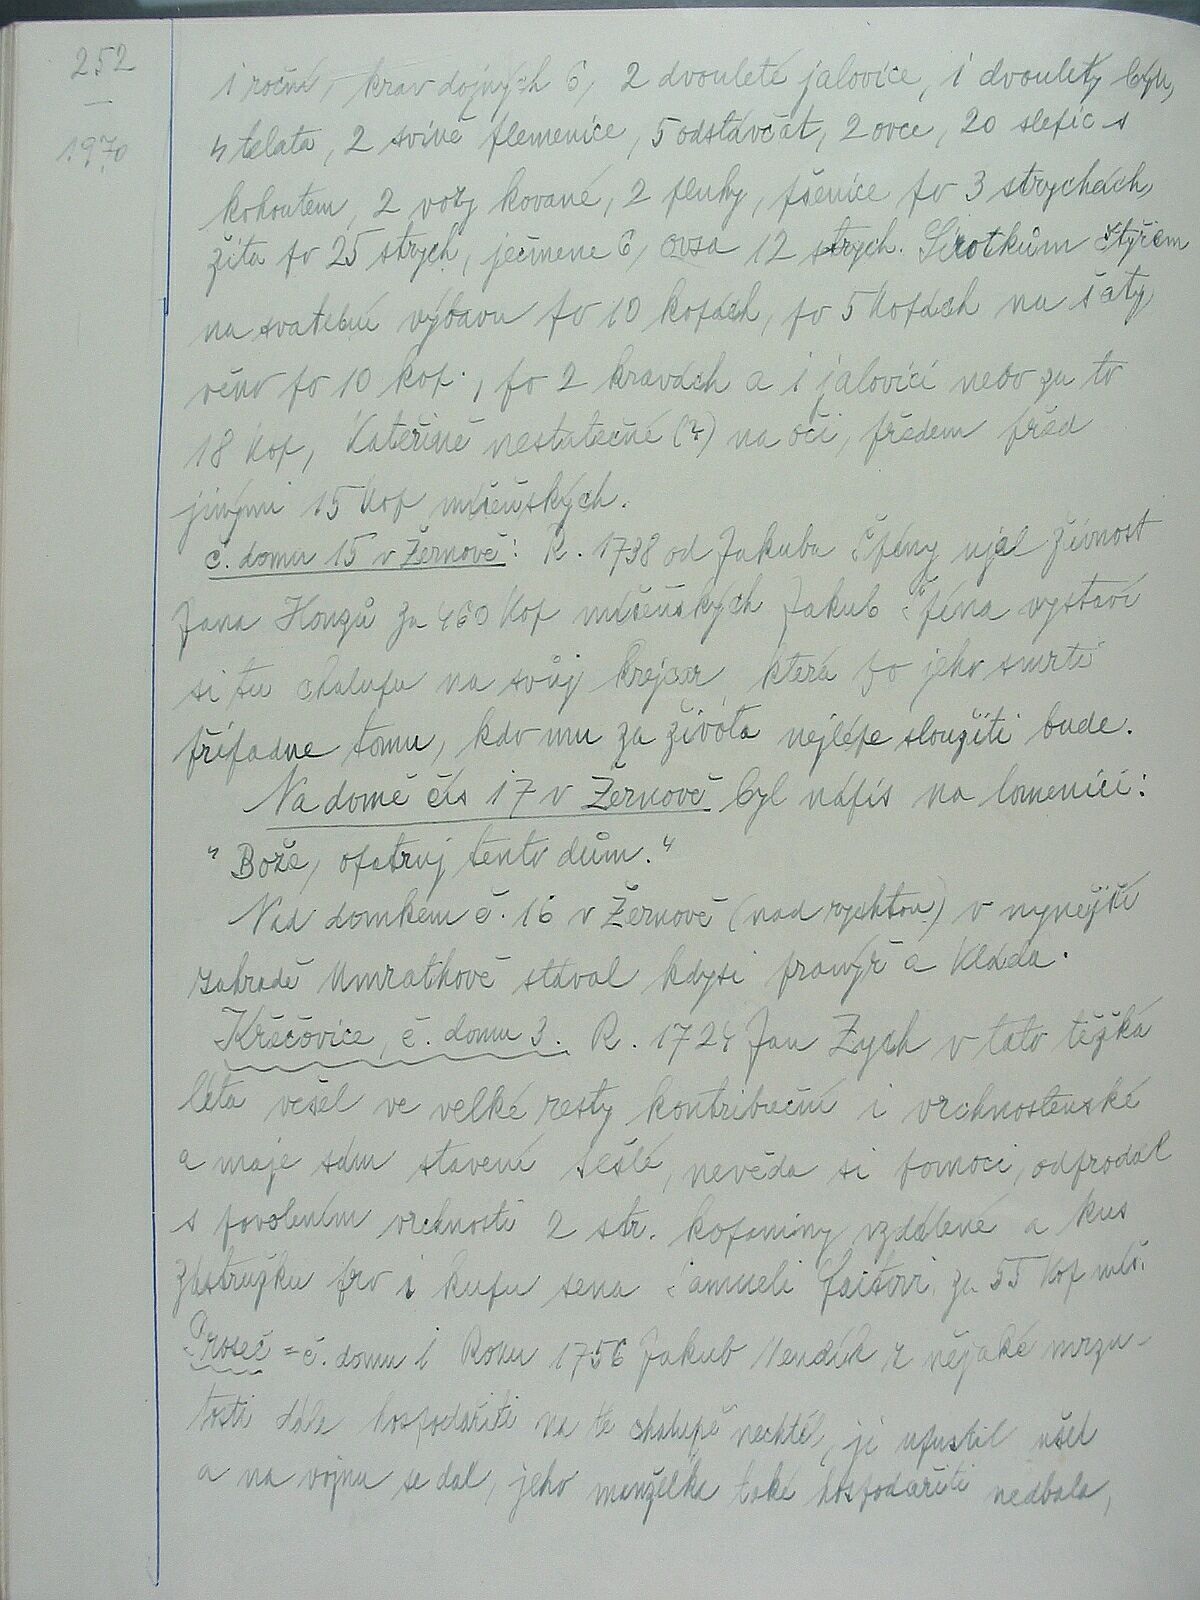 252
1970
1 roční, krav dojných 6, 2 dvouleté jalovice, 1 dvouletý býk,
4 telata, 2 svině plemenice, 5 odstávčat, 2 ovce, 20 slepic s
kohoutem, 2 vozy kované, 2 pluhy, pšenice po 3 strychách,
žita po 25 strych, ječmene 6, ovsa 12 strych. Sirotkům čtyřem
na svatební výbavu po 10 kopách, po 5 kopách na šaty,
věno po 10 kop., po 2 kravách a 1 jalovici nebo za to
18 kop, Kateřině nestatečné (?) na oči, předem před
jinými 15 kop míšeňských.
č. domu 15 v Žernově: R. 1738 od Jakuba Špíny ujal živnost
Jana Honzů za 460 kop míšeňských Jakub Špína vystaví
si tu chalupu na svůj krejcar, která po jeho smrti
připadne tomu, kdo mu za života nejlépe sloužiti bude.
Na domě čís 17 v Žernově byl nápis na lomenici:
"Bože, opatruj tento dům."
Nad domkem č. 16 v Žernově (nad rychtou) v nynější
zahradě Umrathově stával kdysi pranýř a kláda.
Křečovice, č. domu 3. R. 1724 Jan Zych v tato těžká
léta vešel ve velké resty kontribuční i vrchnostenské
a maje sám stavení sešlé, nevěda si pomoci, odprodal
s povolením vrchnosti 2 str. kopaniny vzdálené a kus
zástružku pro 1 kupu sena Samueli Paitovi za 55 kop míš.
Proseč = č. domu 1 Roku 1756 Jakub Vendík z nějaké mrzu-
tosti dále hospodařiti na té chalupě nechtěl, ji upustil ušel
a na vojnu se dal, jeho manželka také hospodařiti nedbala,